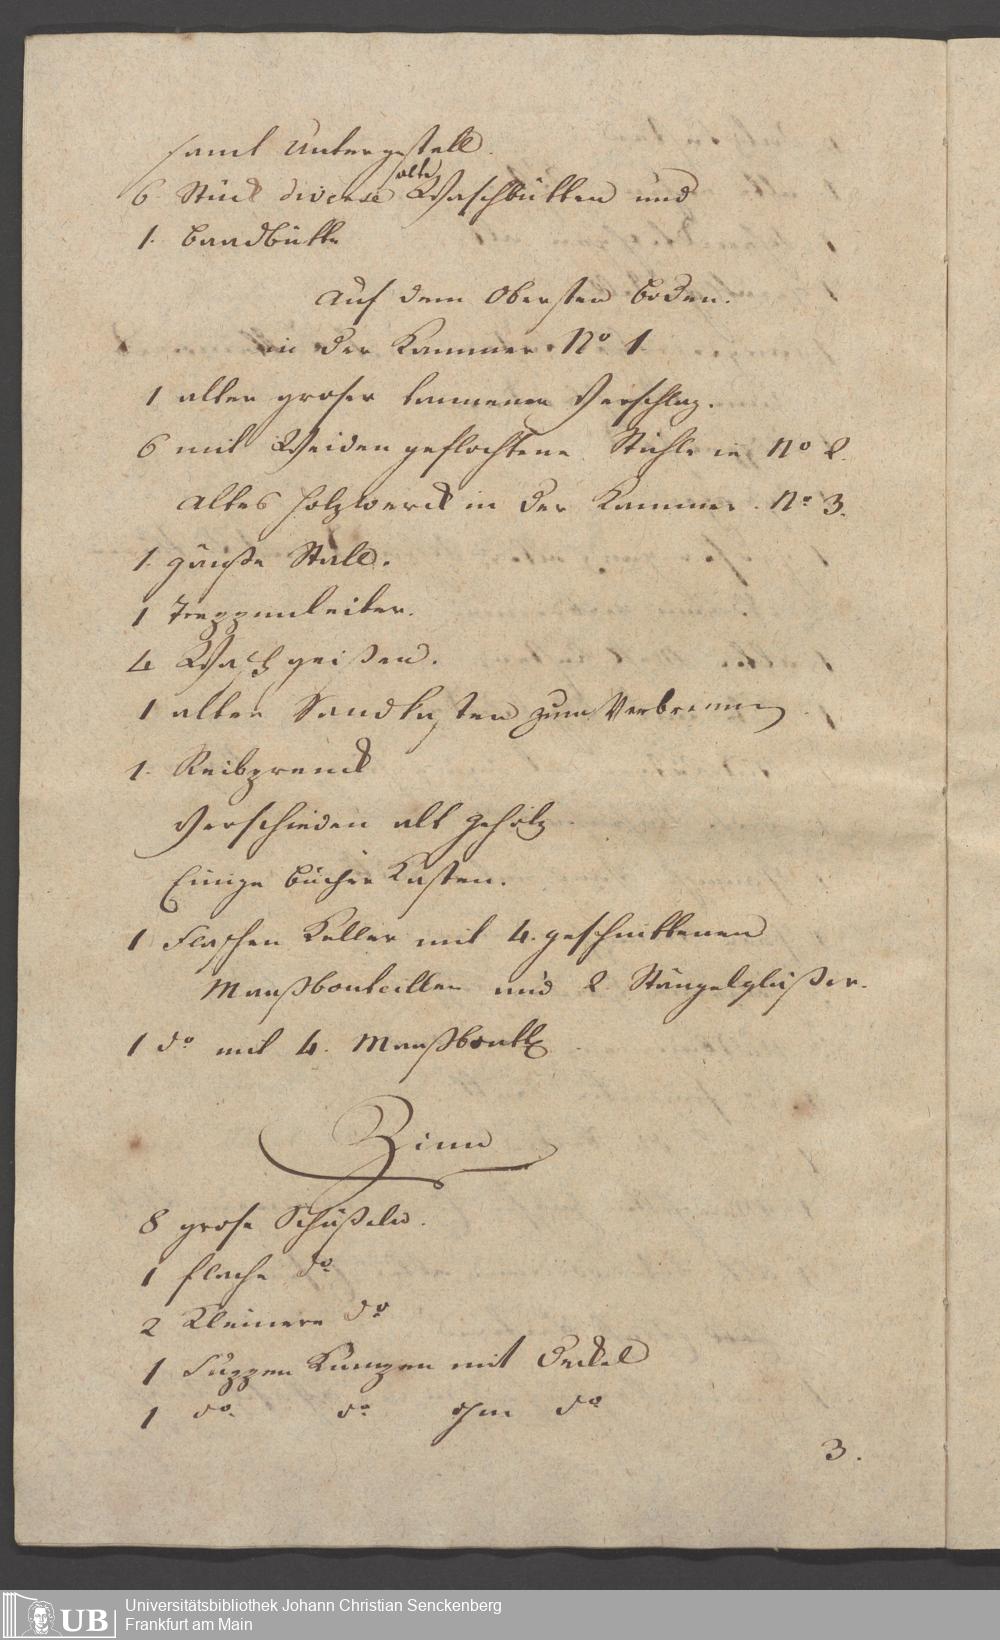 samt Untergestell.
6 Stück diverse alte Waschbütten und
1. Baadbütte
Auf dem Obersten Boden.
in der Kammer No 1
1 alter groser tannener Verschlag.
6 mit Weiden geflochtene Stühle in No 2.
Altes Holzwerck in der Kammer No 3.
1. gänße Stall.
1 Treppenleiter.
4 Waschgeißen.
1 alter Sandkasten zum Verbrennen
1.
Verschieden alt Gehölz
Einige Bücher Kasten.
1 Flaschen Keller mit 4. geschnittenen
Maaßbouteillen und 2 Stängelgläßer.
1 do mit 4. Maaßboutll
Zinn
8 grose Schüßeln.
1 flache do
2 Kleinere do
1 Suppen Kumpen mit Deckel
1 do. do ohne do
3.
Universitätsbibliothek Johann Christian Senckenberg
Frankfurt am Main
UB